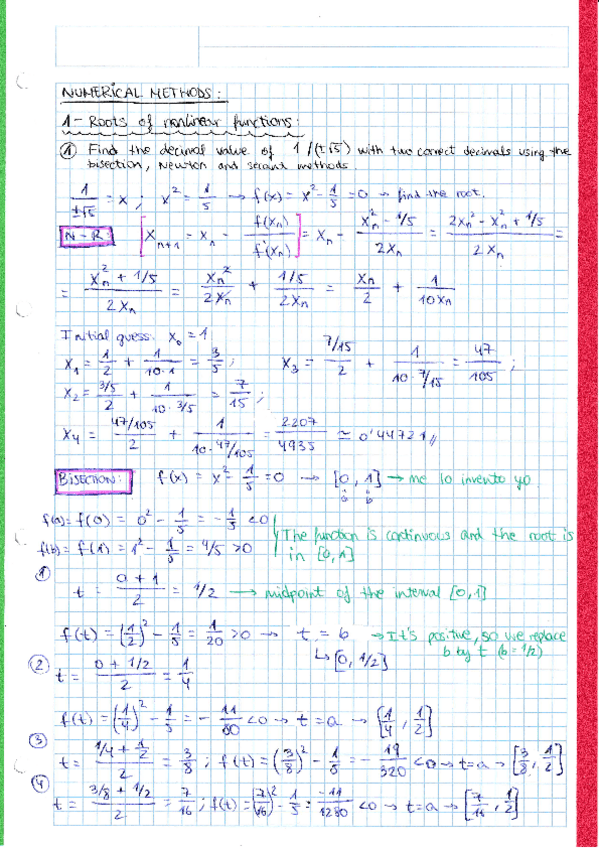 NUMERICAL METHODS:
1 - Roots of nonlinear functions:
① Find the decimal value of 1/(±√5) with two correct decimals using the
bisection, Newton and secant methods.
1/±√5 = x ; x² = 1/5 → f(x) = x² - 1/5 = 0 → find the root.
N-R: [x_{n+1} = x_n - f(x_n)/f'(x_n)] = x_n - (x_n² - 1/5)/(2x_n) = (2x_n² - x_n² + 1/5)/(2x_n) =
= (x_n² + 1/5)/(2x_n) = x_n²/(2x_n) + (1/5)/(2x_n) = x_n/2 + 1/(10x_n)
Initial guess: x₀ = 1
x₁ = 1/2 + 1/(10·1) = 3/5 ; x₃ = (7/15)/2 + 1/(10·7/15) = 47/105 ;
x₂ = (3/5)/2 + 1/(10·3/5) = 7/15 ;
x₄ = (47/105)/2 + 1/(10·47/105) = 2207/4935 ≃ 0'44721 //
BISECTION: f(x) = x² - 1/5 = 0 → [0, 1] → me lo invento yo
a b
f(a) = f(0) = 0² - 1/5 = -1/5 < 0
The function is continuous and the root is
f(b) = f(1) = 1² - 1/5 = 4/5 > 0
in [0,1]
① t = (0 + 1)/2 = 1/2 → midpoint of the interval [0,1]
f(t) = (1/2)² - 1/5 = 1/20 > 0 → t = b → It's positive, so we replace
↳ [0, 1/2] b by t (b = 1/2)
② t = (0 + 1/2)/2 = 1/4
f(t) = (1/4)² - 1/5 = - 11/80 < 0 → t = a → [1/4, 1/2]
③ t = (1/4 + 1/2)/2 = 3/8 ; f(t) = (3/8)² - 1/5 = - 19/320 < 0 → t = a → [3/8, 1/2]
④ t = (3/8 + 1/2)/2 = 7/16 ; f(t) = (7/16)² - 1/5 = -11/1280 < 0 → t = a → [7/16, 1/2]